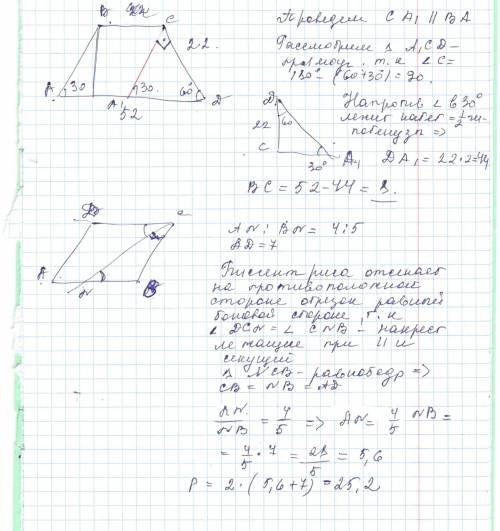 B
C
22
A
30
A'
30
60°
D
52
Проведем CA₁ ∥ BA
Рассмотрим Δ A₁CD –
прямоуг., т.к ∠C=
180° – (60+30) = 90.
D
60
22
C
30°
A₁
Напротив ∠ в 30°
лежит катет = 1/2 ги-
потенузы =>
DA₁ = 22·2=44
BC = 52-44 = 8.
D
C
A
N
B
AN : BN = 4:5
AD=7
Биссектриса отсекает
на противоположной
стороне отрезок равный
боковой стороне, т.к
∠ DCN = ∠ CNB – накрест
лежащие при ∥ и
секущей
Δ NCB – равнобедр =>
CB = NB = AD
AN/NB = 4/5 => AN = 4/5 NB =
= 4/5 · 7 = 28/5 = 5,6
P = 2·(5,6+7) = 25,2